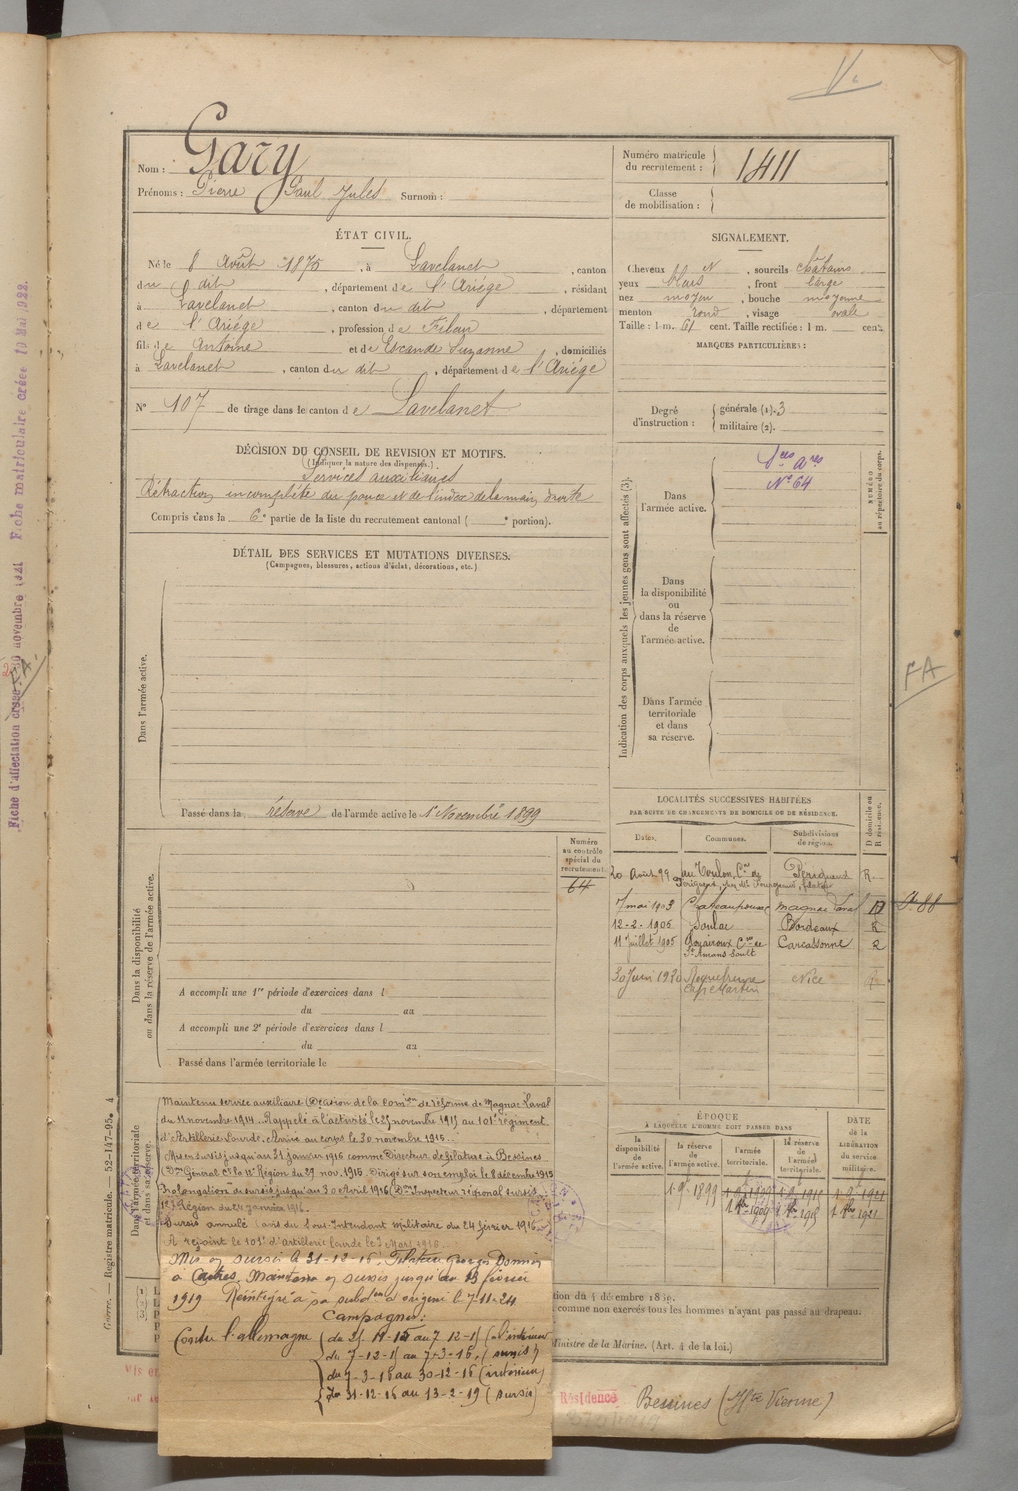 Nom : Gary
Prénoms : Pierre Paul Jules Surnom :
Numéro matricule
du recrutement : 1411
Classe
de mobilisation :
ÉTAT CIVIL.
Né le 8 Août 1875, à Lavelanet, canton
du dit, département de l'Ariège, résidant
à Lavelanet, canton du dit, département
de l'Ariège, profession de Fileur
fils de Antoine et de Escande Suzanne, domiciliés
à Lavelanet, canton du dit, département de l'Ariége
N° 107 de tirage dans le canton de Lavelanet
SIGNALEMENT.
Cheveux et, sourcils châtains
yeux bleus, front large
nez moyen, bouche moyenne
menton rond, visage ovale
Taille : 1 m. 61 cent. Taille rectifiée : 1 m. cent.
MARQUES PARTICULIÈRES :
Degré
d'instruction :
générale (1). 3
militaire (2).
DÉCISION DU CONSEIL DE REVISION ET MOTIFS.
(Indiquer la nature des dispenses.)
Services auxiliaires
Rétraction incomplète du pouce et de l'index de la main droite
Compris dans la 6e partie de la liste du recrutement cantonal ( e portion).
DÉTAIL DES SERVICES ET MUTATIONS DIVERSES.
(Campagnes, blessures, actions d'éclat, décorations, etc.)
Dans l'armée active.
Passé dans la réserve de l'armée active le 1er Novembre 1899
Indication des corps auxquels les jeunes gens sont affectés (3).
Dans
l'armée active.
Sces Ares
N° 64
NUMÉRO
au répertoire du corps.
Dans
la disponibilité
ou
dans la réserve
de
l'armée active.
Dans l'armée
territoriale
et dans
sa réserve.
FA
Numéro
au contrôle
spécial du
recrutement.
64
Dans la disponibilité
ou dans la réserve de l'armée active.
A accompli une 1re période d'exercices dans l
du au
A accompli une 2e période d'exercices dans l
du au
Passé dans l'armée territoriale le
LOCALITÉS SUCCESSIVES HABITÉES
PAR SUITE DE CHANGEMENTS DE DOMICILE OU DE RÉSIDENCE.
Dates. Communes. Subdivisions
de région. D domicile ou
R résidence.
20 Août 99 au Toulon, Cne de Périgueux R
7 mai 1903 Chateauponsac Magnac Laval D
12-2-1905 Soulac Bordeaux R
11 Juillet 1905 Rouairoux Cton de Carcassonne R
St Amans Soult
30 Juin 1930 Roquebrune Nice R
Cap Martin
Dans l'armée territoriale
et dans sa réserve.
Maintenu service auxiliaire (Décision de la Comon de réforme de Magnac Laval
du 11 novembre 1914. Rappelé à l'activité le 25 novembre 1915 au 101e régiment
d'Artillerie Lourde. Arrivé au corps le 30 novembre 1915.
Mis en sursis jusqu'au 31 janvier 1916 comme Directeur de filature à Bessines
(Don Général Ct la 12e Région du 29 nov. 1915. Dirigé sur son emploi le 8 décembre 1915
Prolongation de sursis jusqu'au 30 Avril 1916 (Don Inspecteur régional sursis
12e Région du 24 janvier 1916.
Sursis annulé (avis du Sous-Intendant militaire du 24 février 1916
A rejoint le 101e d'Artillerie lourde le 7 Mars 1916.
Mis en sursis le 31-12-16, Filature Georges Donnin
à Castres. Maintenu en sursis jusqu'au 13 février
1919 Réintégré à sa subdon d'origine le 7-11-24
Campagnes :
Contre l'allemagne
du 25-11-15 au 7-12-15 (intérieur)
du 7-12-15 au 7-3-16 (sursis)
du 7-3-16 au 30-12-16 (intérieur)
du 31-12-16 au 13-2-19 (sursis)
ÉPOQUE
À LAQUELLE L'HOMME DOIT PASSER DANS
la
disponibilité
de
l'armée active.
la réserve
de
l'armée active.
l'armée
territoriale.
la réserve
de
l'armée
territoriale.
DATE
de la
LIBÉRATION
du service
militaire.
1 9bre 1899
1 8bre 1909
1 8bre 1921
tion du 4 décembre 1889.
comme non exercés tous les hommes n'ayant pas passé au drapeau.
Ministre de la Marine. (Art. 4 de la loi.)
Résidence Bessines (Hte Vienne)
Guerre. — Registre matricule. — 52-147-95. 4
Fiche d'affectation créée 30 novembre 1921 Fiche matriculaire créée 10 Mai 1922.